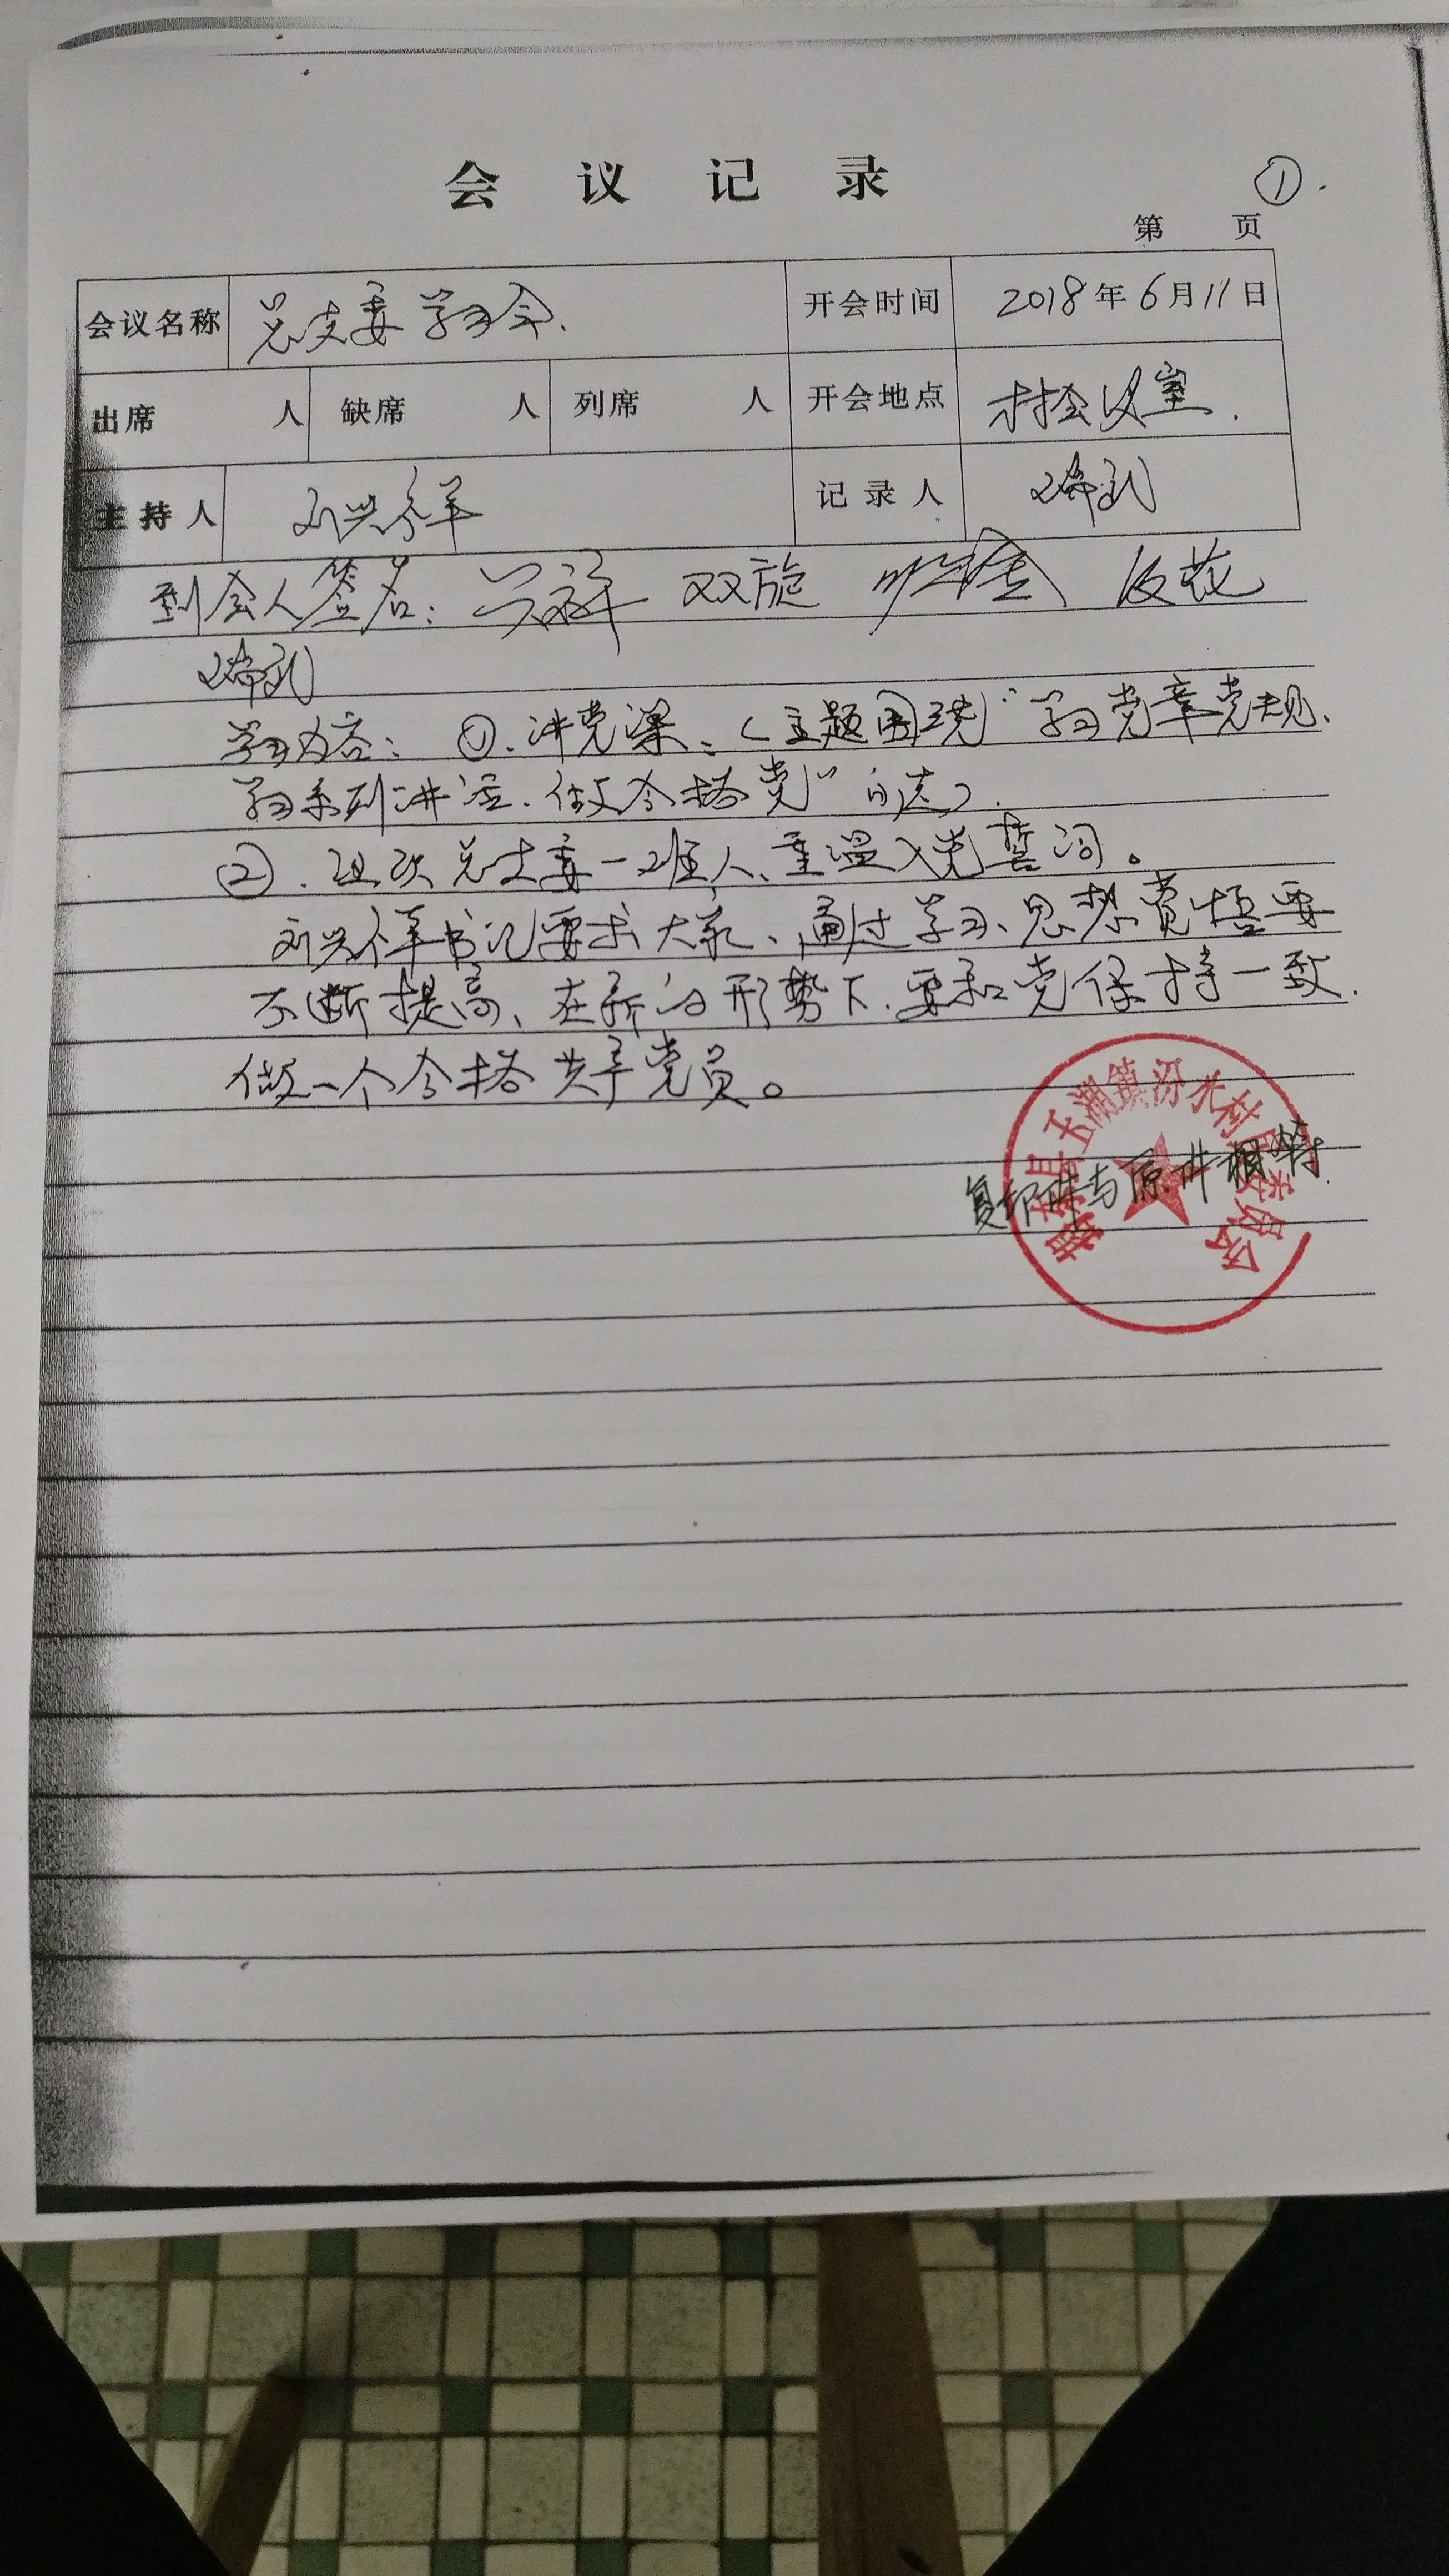 会议记录
①
第 页
会议名称 总支委学习会. 开会时间 2018年6月11日
出席 人 缺席 人 列席 人 开会地点 村会议室.
主持人 刘兴祥 记录人
到会人签名: 兴祥 双旋
学习内容: ①. 讲党课、(主题围绕"学习党章党规、
学习系列讲话. 做合格党"的
②. 组织总支委一班人、重温入党誓词。
刘兴祥书记要求大家、通过学习、思想觉悟要
不断提高、在新的形势下. 要和党保持一致.
做一个合格共产党员。
揭东县玉湖镇汾水村民委员会
复印件与原件相符